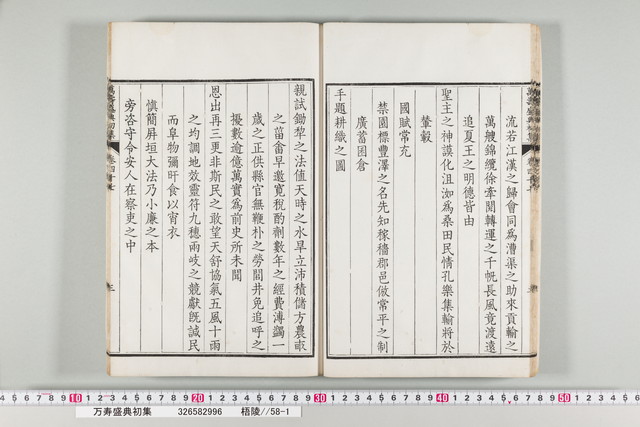 流若江漢之歸會同為漕渠之助來貢輸之
萬艘錦纜徐牽閱轉運之千帆長風竟渡遠
追夏王之明德皆由
聖主之神謨化沮洳為桑田民情孔樂集輸將於
輦轂
國賦常充
禁園標豐澤之名先知稼穡郡邑倣常平之制
廣蓄囷倉
手題耕織之圖
親試鋤犁之法値天時之水旱立沛積儲方農畝
之菑畬早邀寬稅酌劑數年之經費溥蠲一
歲之正供縣官無鞭朴之勞閭井免追呼之
擾數逾億萬實為前史所未聞
恩出再三更非斯民之敢望天舒協氣五風十雨
之均調地效靈符九穗兩岐之競獻旣誠民
而阜物彌旰食以宵衣
愼簡屏垣大法乃小廉之本
旁咨守令安人在察吏之中
三
10 20 30 40 50
万寿盛典初集 326582996 梧陵//58-1